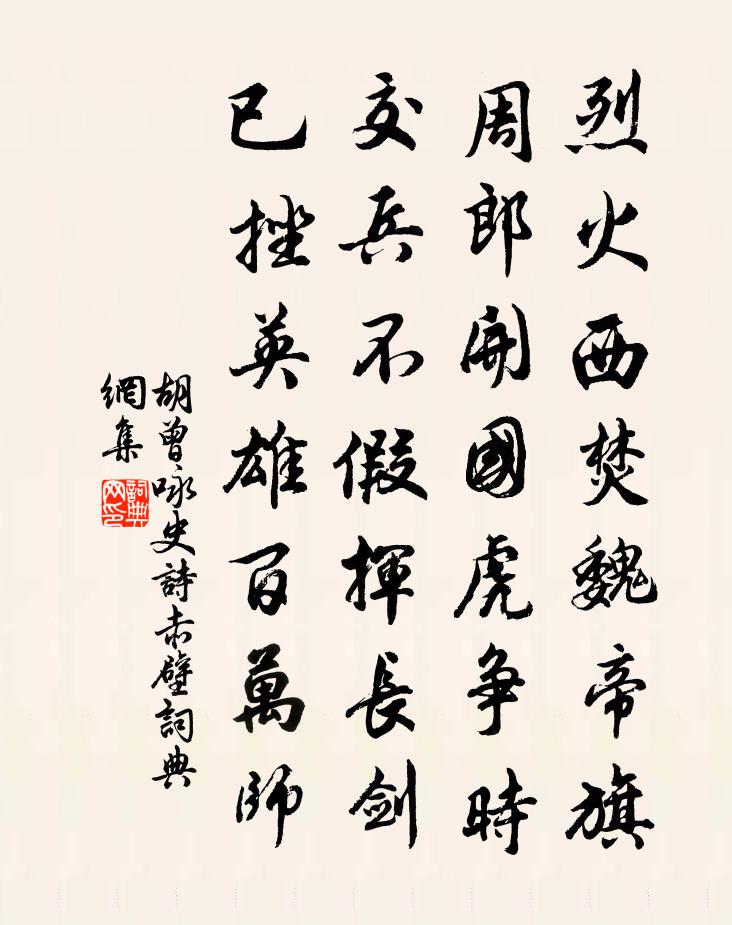 烈火西焚魏帝旗
周郎開國虎争時
交兵不假揮長剑
已挫英雄百萬師
胡曾咏史詩赤壁詞典
網集
詞典
网印